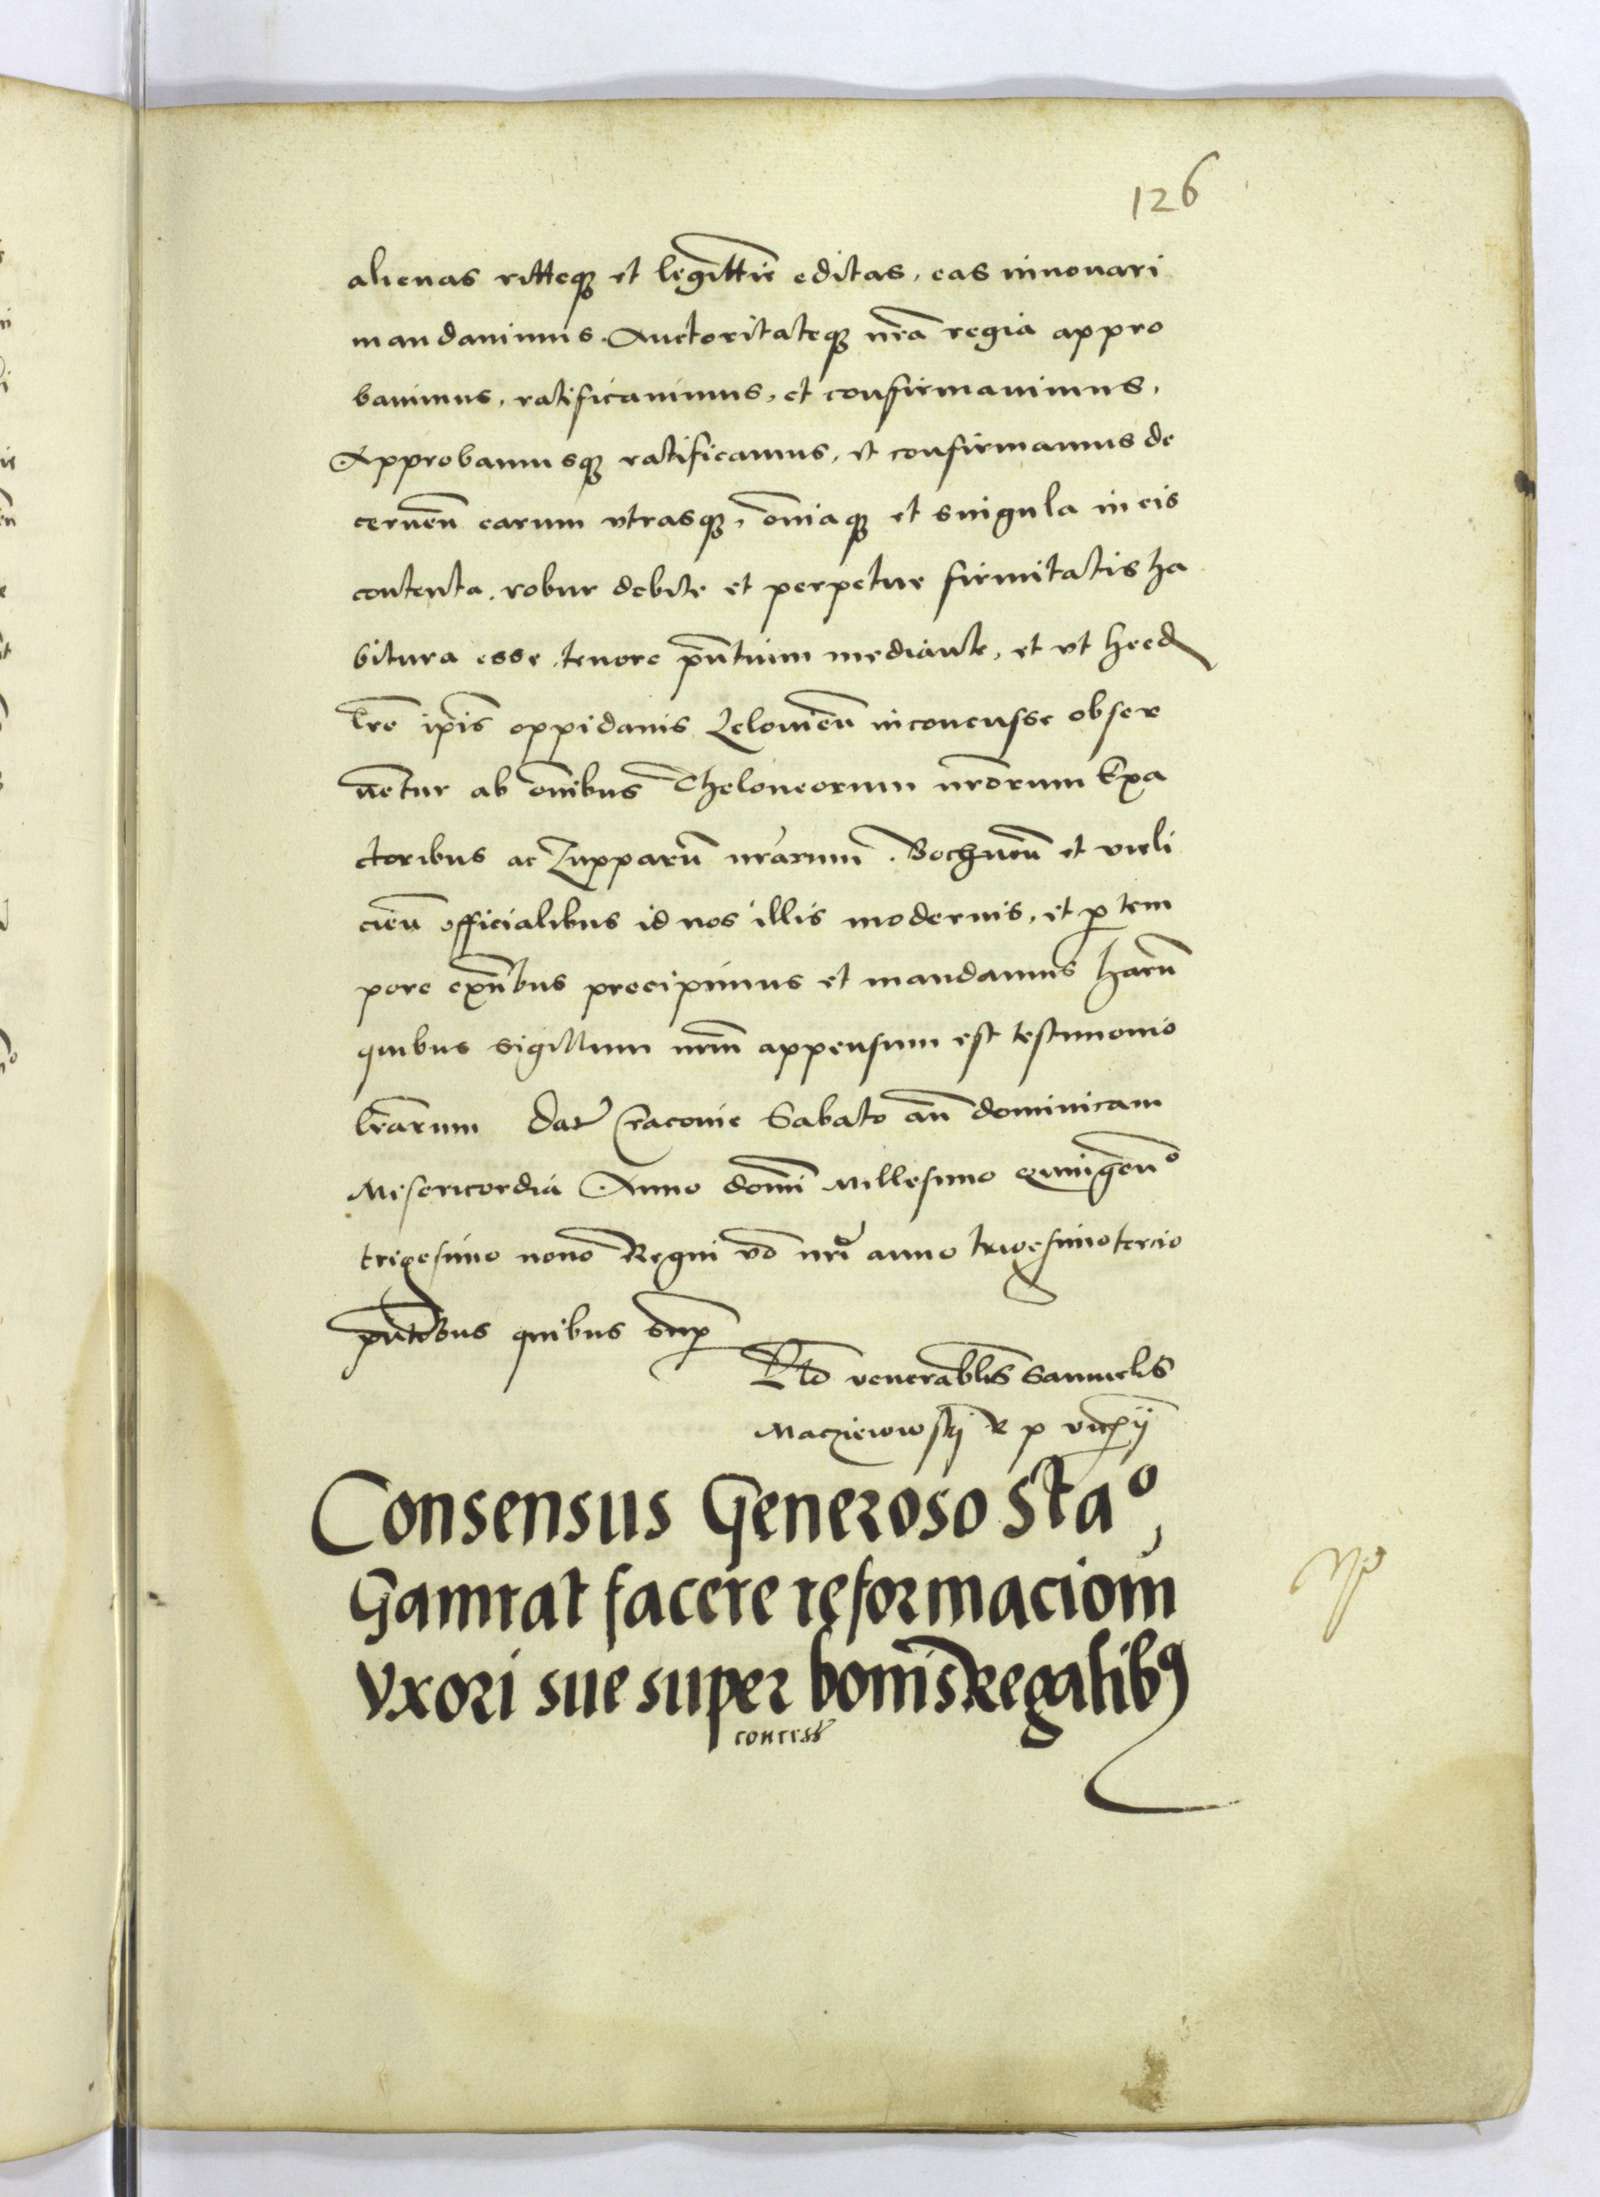 126
alienas ritteq et legittīe editas, eas innouari
mandauimus. Auctoritateq nrā regia appro
bauimus, ratificauimus, et confirmauimus,
Approbamusq ratificamus, et confirmamus de
cernen̄ earum vtrasq, om̄iaq et singula in eis
contenta, robur debite et perpetue firmitatis ha
bitura esse tenore pn̄tium mediante, et vt heed
lr̄e ip̄is oppidanis Lelouien̄ inconcusse obser
uētur ab om̄ibus Theloneorum nrōrum Exa
ctoribus ac Zupparū nrārum. Bochnen̄ et vieli
cien̄ officialibus id nos illis modernis, et p tem
pore exn̄tibus precipimus et mandamus harū
quibus sigillum nrm̄ appensum est testimonio
lrārum Dat Cracouie Sabato an̄ dominicam
Misericordia Anno domī Millesimo quingen̄o
trigesimo nono Regni vō nrī anno tricesimotercio
pn̄tibus quibus sup
Rlō venerablīs Samuelis
Macziewowskÿ R p vicz̄ÿ
Consensus Generoso Stao,
Gamrat facere reformaciom̄
Vxori sue super bonis Regalib9
concess